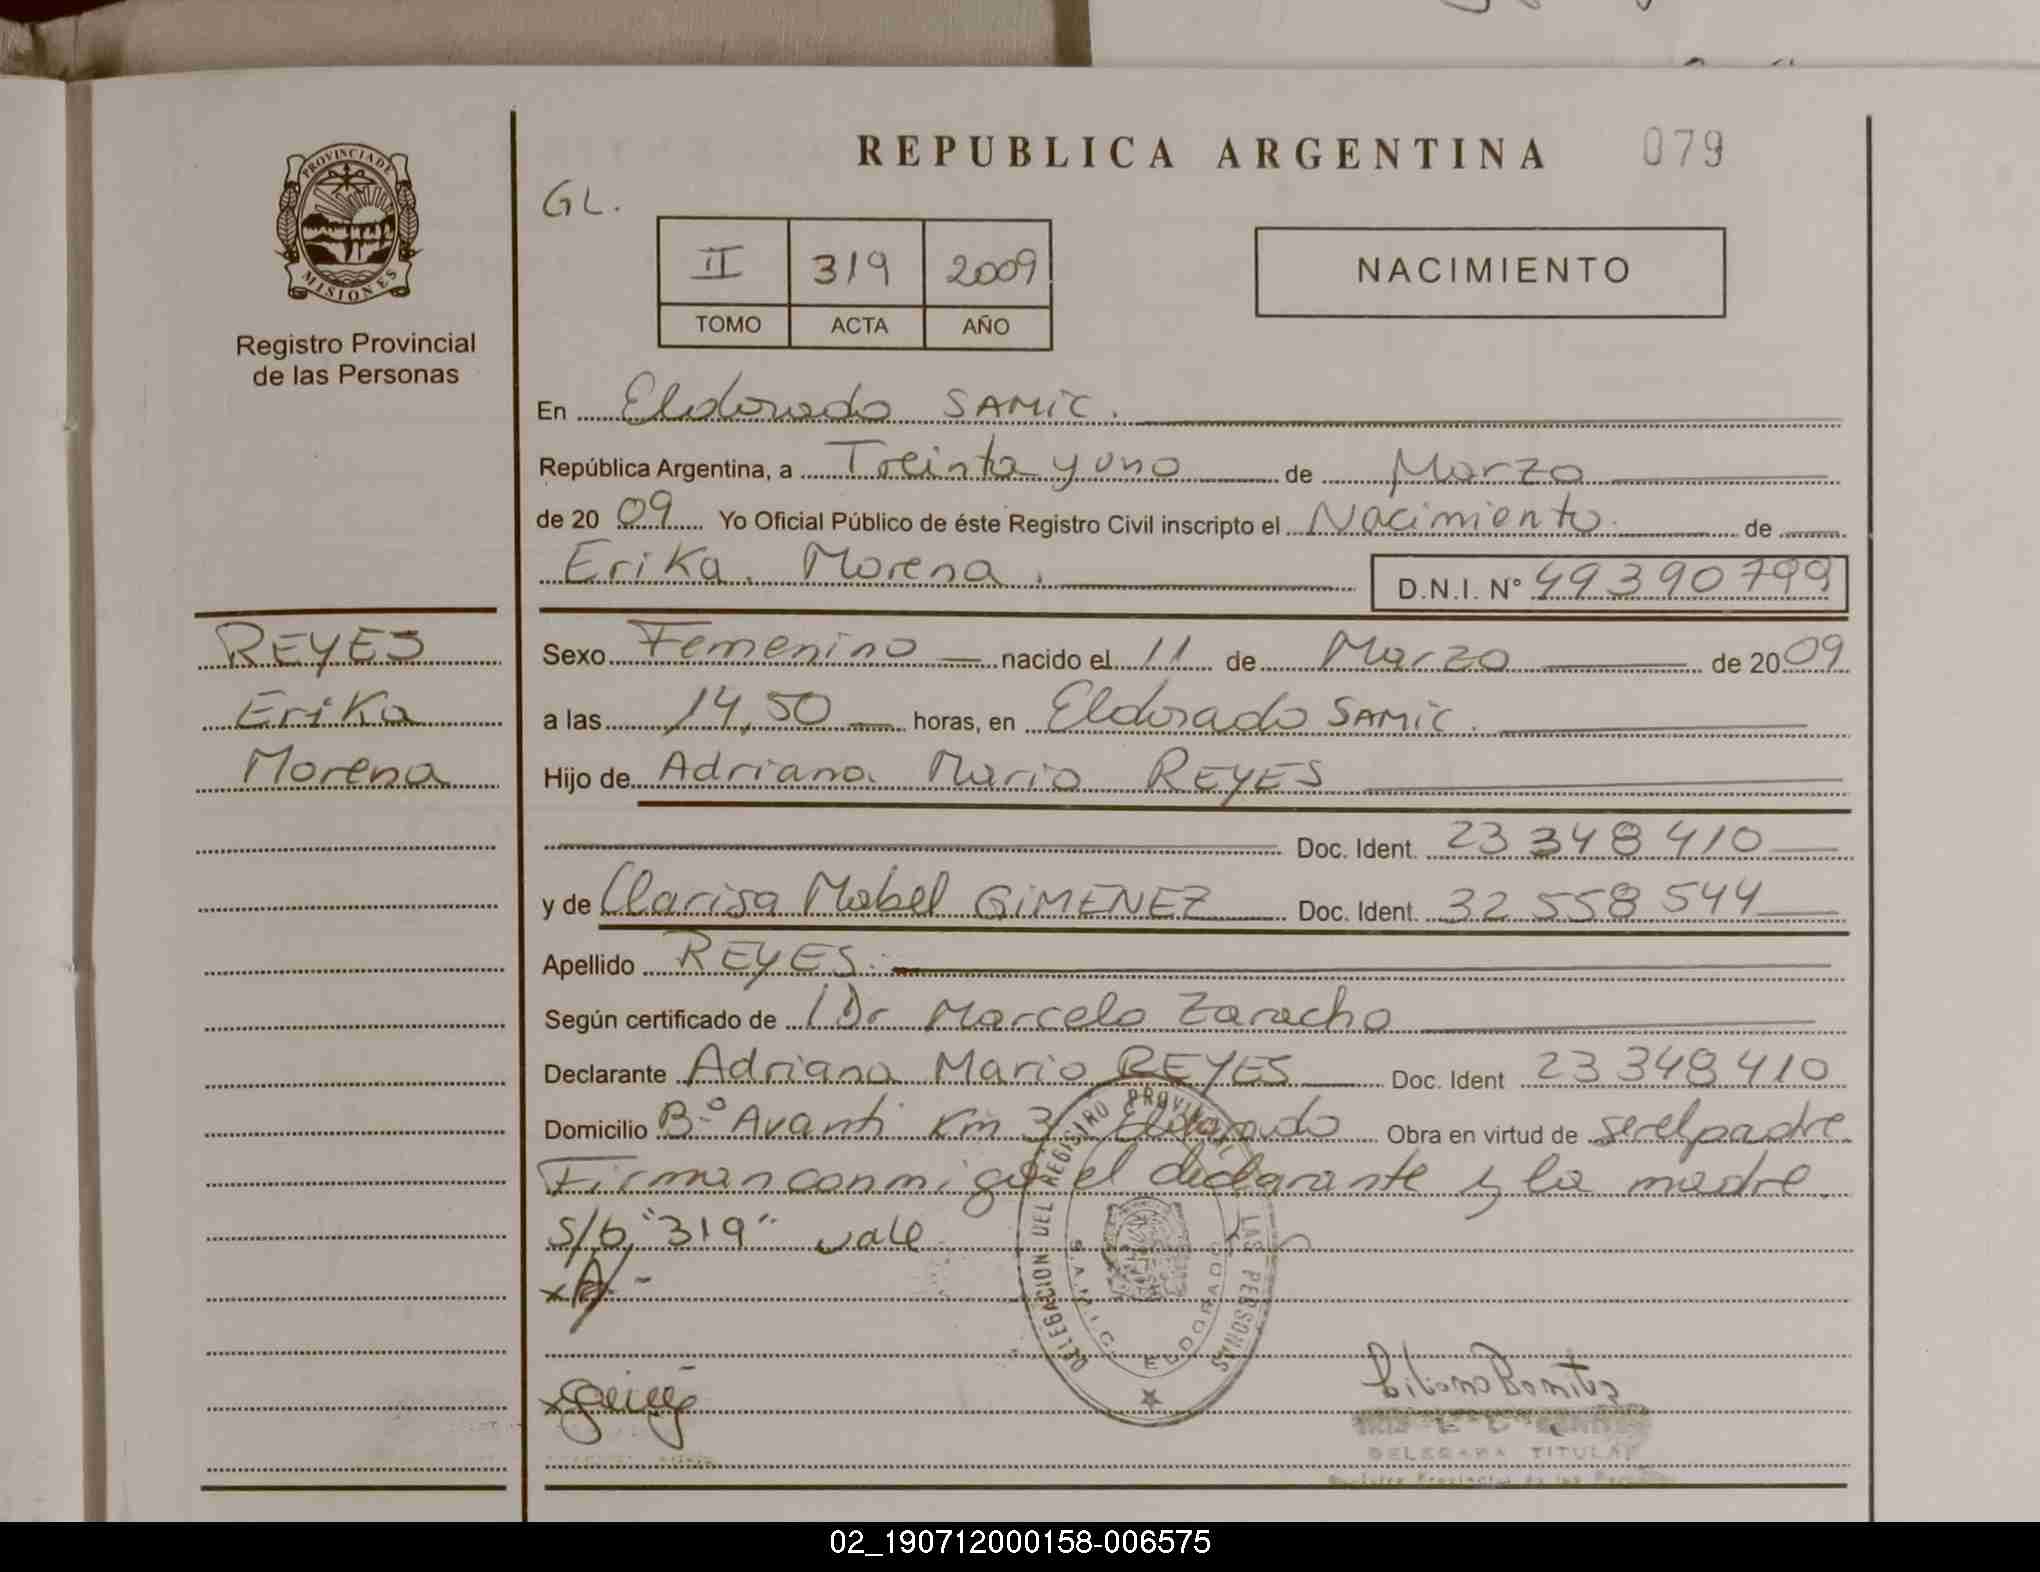 REPUBLICA ARGENTINA 079
PROVINCIA DE
MISIONES
Registro Provincial
de las Personas
GL.
II 319 2009
TOMO ACTA AÑO
NACIMIENTO
En Eldorado SAMIC.
República Argentina, a Treinta y uno de Marzo
de 2009 Yo Oficial Público de éste Registro Civil inscripto el Nacimiento de
Erika Morena D.N.I. Nº 49390799
REYES
Erika
Morena
Sexo Femenino nacido el 11 de Marzo de 2009
a las 14,50 horas, en Eldorado SAMIC.
Hijo de Adriano Mario REYES
Doc. Ident. 23 348 410
y de Clarisa Mabel GIMENEZ Doc. Ident. 32 558 544
Apellido REYES.
Según certificado de Dr Marcelo Zaracho
Declarante Adriano Mario REYES Doc. Ident 23 348 410
Domicilio Bº Avanti Km 3 Eldorado Obra en virtud de ser el padre
Firman conmigo el declarante y la madre
s/b "319" vale
DELEGACION DEL REGISTRO PROVINCIAL LAS PERSONAS
S.A.M.I.C. ELDORADO
DELEGADA TITULAR
Registro Provincial de las Personas
02_190712000158-006575